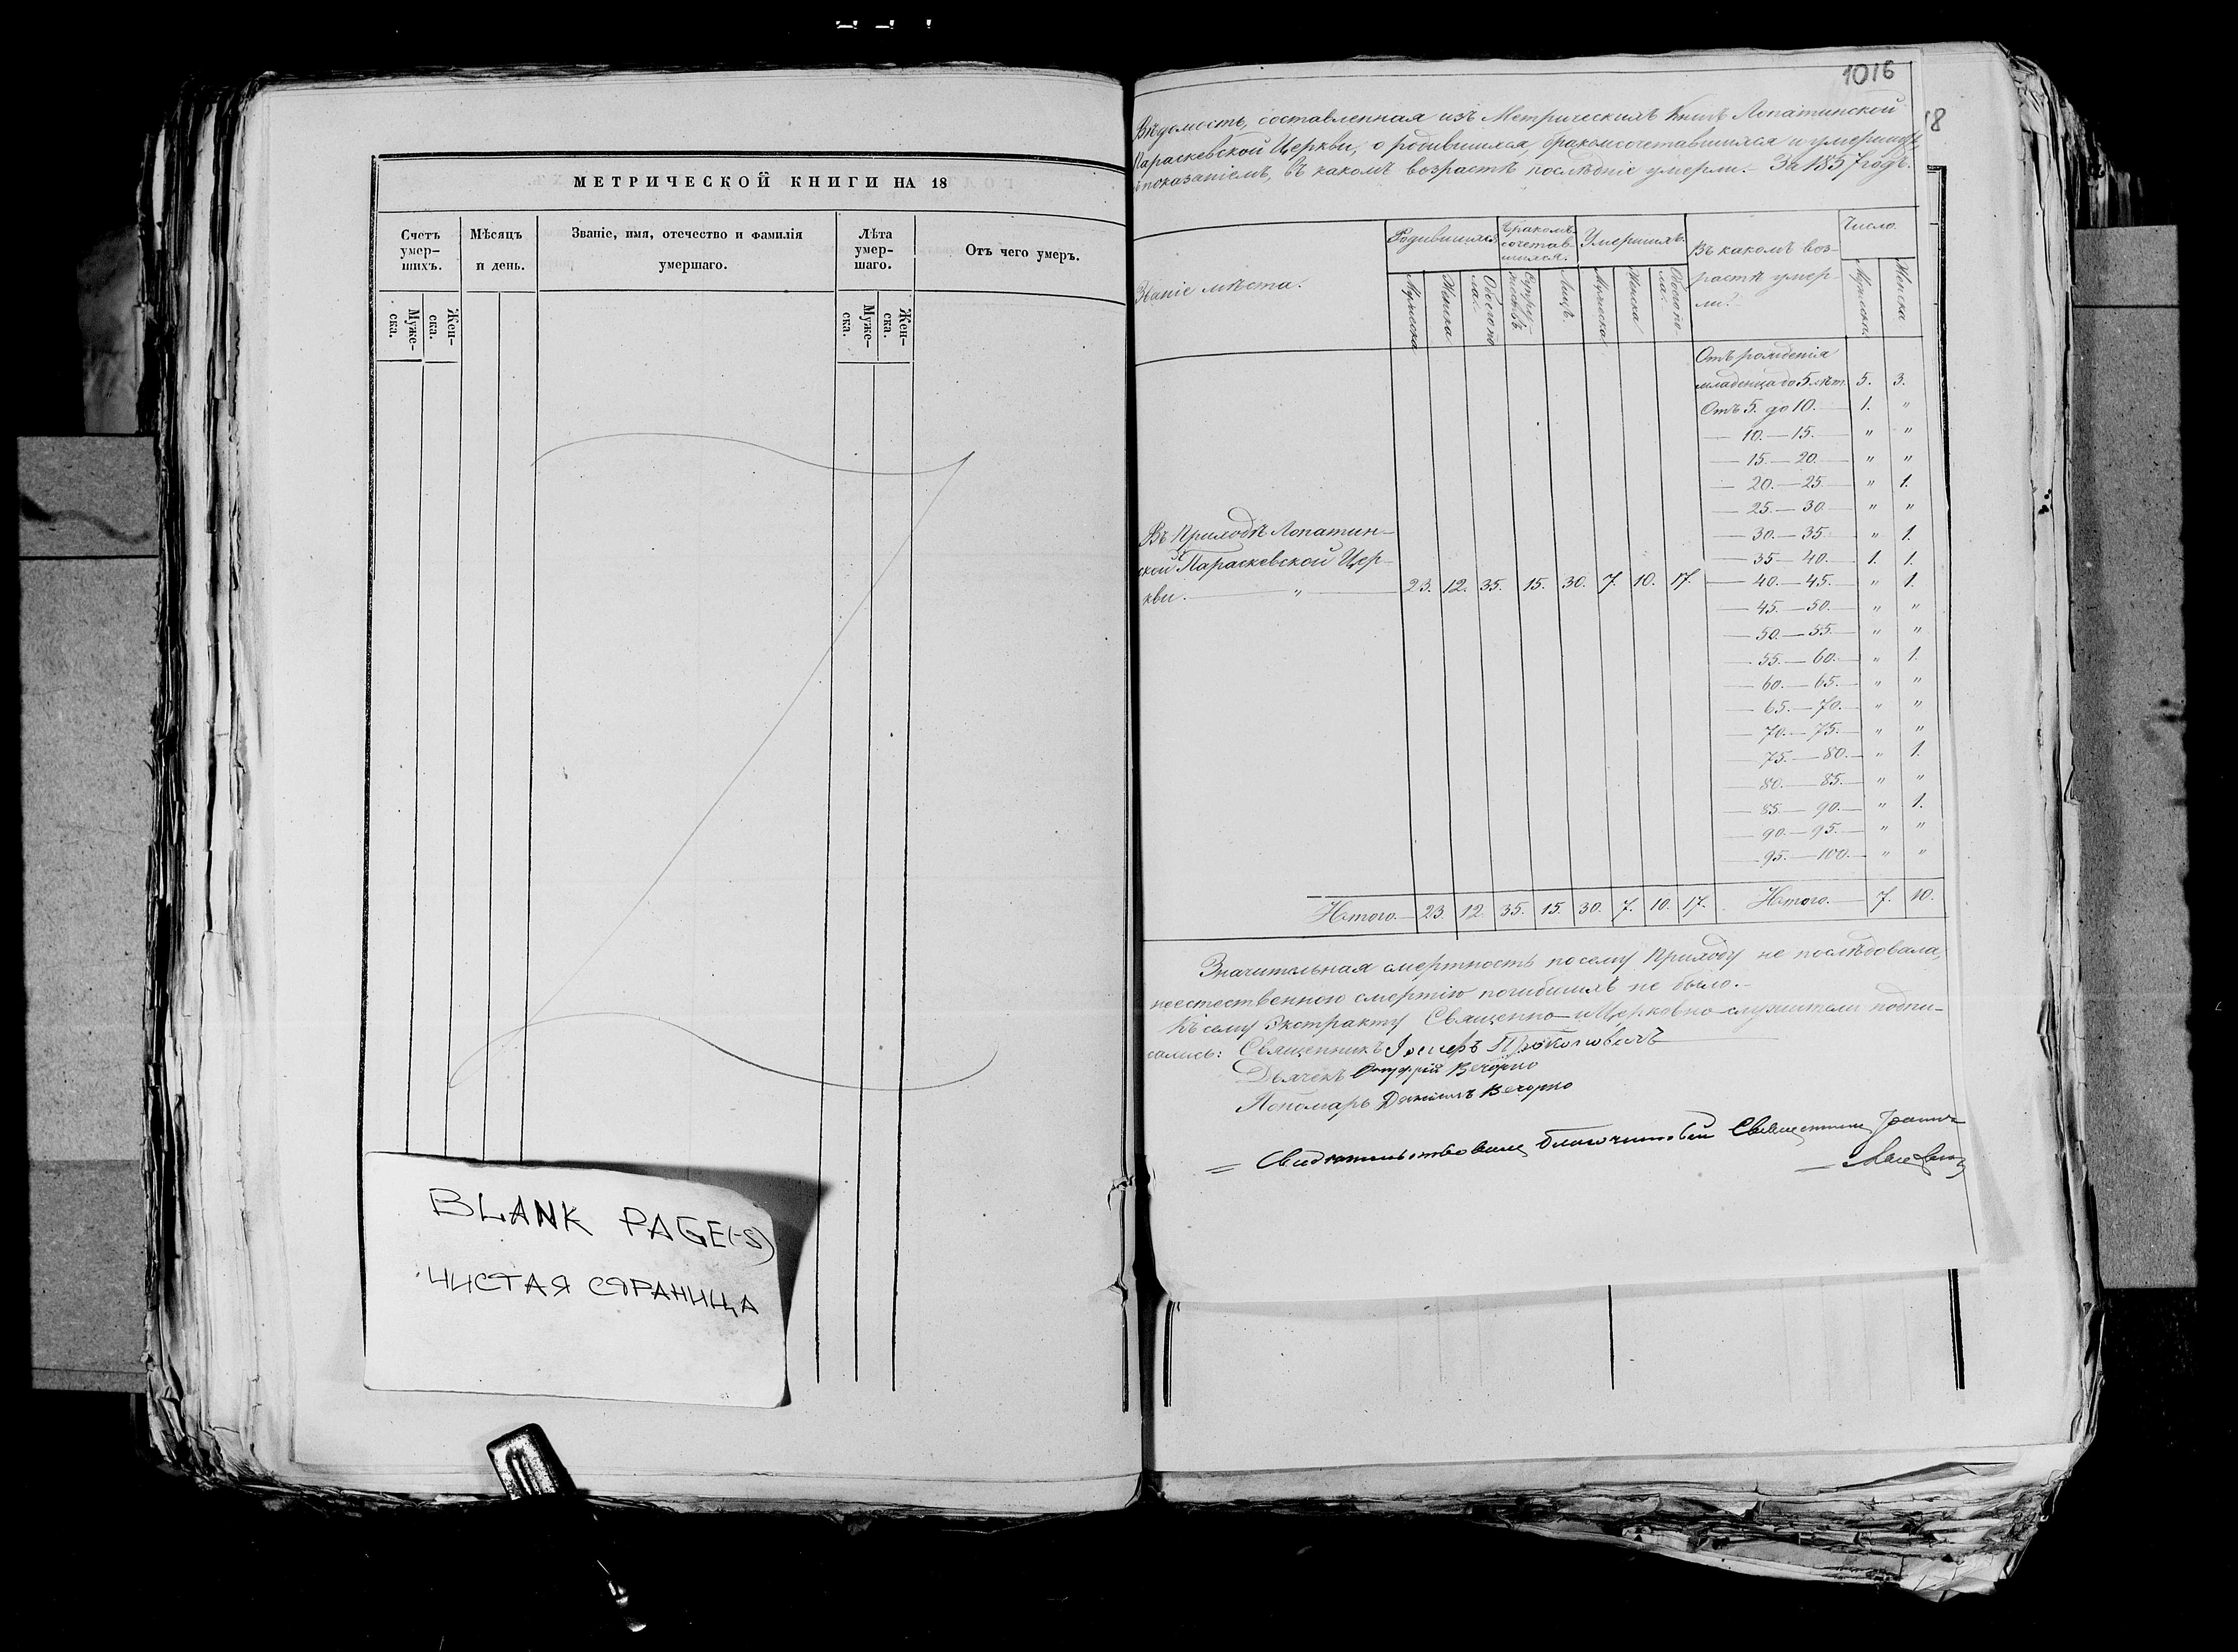 МЕТРИЧЕСКОЙ КНИГИ НА 18
Счетъ умер-шихъ.
Мѣсяцъ и день.
Званіе, имя, отечество и фамилія умершаго.
Лѣта умер-шаго.
Отъ чего умеръ.
Муже-ска.
Жен-ска.
Муже-ска.
Жен-ска.
BLANK PAGE(-S)
ЧИСТАЯ СТРАНИЦА
1016
18
Вѣдомость, составленная изъ Метрическихъ Книгъ Лопатинской
Параскевской Церкви, о родившихся, бракомсочетавшихся и умершихъ,
съ показаніемъ, въ какомъ возрастѣ послѣдніе умерли. – За 1857 годъ.
Званіе мѣста.
Родившихся
Бракомъ сочетав-шихся.
Умершихъ.
Въ какомъ воз-
растѣ умер-
ли?
Число.
Мужеска
Женска
Обоего по-ла.
Супру-жествъ
Лицъ.
Мужеска
Женска
Обоего по-ла.
Мужеска.
Женска
Отъ рожденія
младенца до 5 лѣт. 5. 3.
Отъ 5. до 10. — 1. "
— 10. — 15. — " "
— 15. — 20. — " "
— 20. — 25. — " 1.
— 25. — 30. — " "
— 30. — 35. — " 1.
— 35. — 40. — 1. 1.
— 40. — 45. — " 1.
— 45. — 50. — " "
— 50. — 55. — " "
— 55. — 60. — " 1.
— 60. — 65. — " "
— 65. — 70. — " "
— 70. — 75. — " "
— 75. — 80. — " 1.
— 80. — 85. — " "
— 85. — 90. — " 1.
— 90. — 95. — " "
— 95. — 100. — " "
Въ Приходѣ Лопатин-
ской Параскевской Цер-
кви. — " — 23. 12. 35. 15. 30. 7. 10. 17.
Итого. — 23. 12. 35. 15. 30. 7. 10. 17. Итого. — 7. 10.
Значительная смертность по сему Приходу не послѣдовала,
неестественною смертію погибшихъ не было. –
Къ сему Экстракту Священно- и Церковно-служители подпи-
сались: Священникъ Іосифъ Прокоповичъ
Дьячекъ Онуфрій Вечорко
Пономарь Даніилъ Вечорко
= Свидѣтельствовалъ Благочинный Священникъ Іоаннъ